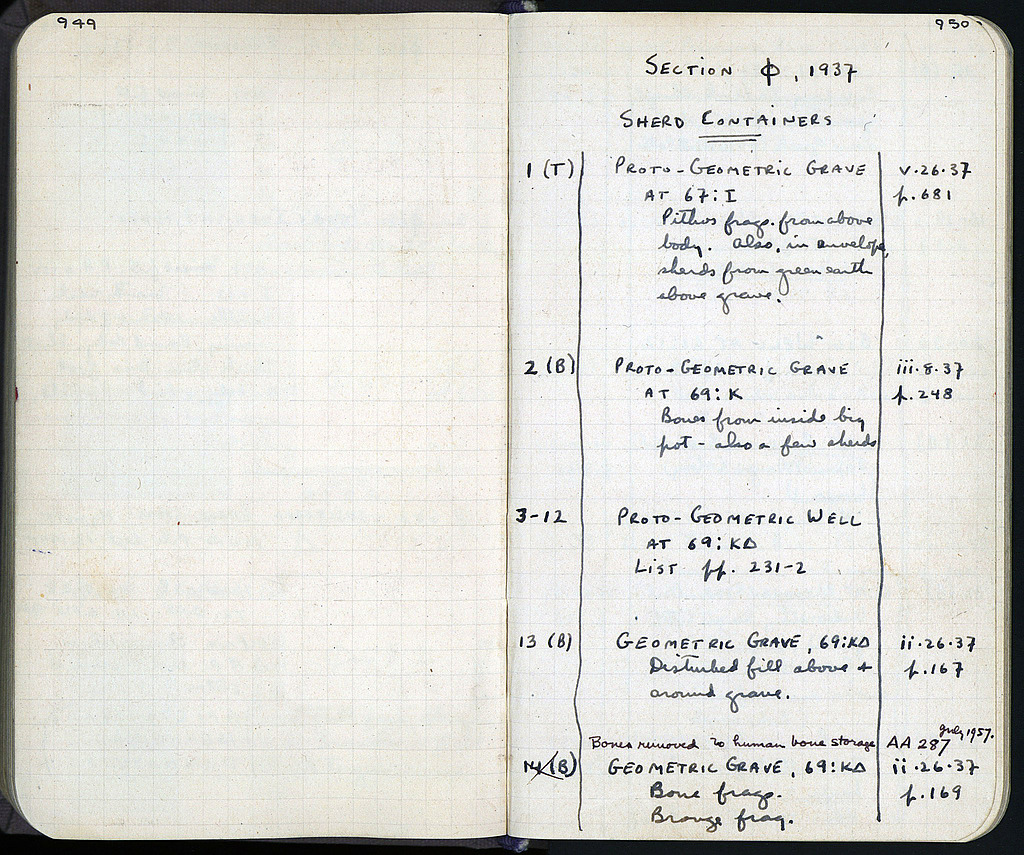 949
950
SECTION Φ, 1937
SHERD CONTAINERS
1 (T) PROTO-GEOMETRIC GRAVE v.26.37
AT 67:I p.681
Pithos frags. from above
body. Also, in envelope,
sherds from green earth
above grave.
2 (B) PROTO-GEOMETRIC GRAVE iii.8.37
AT 69:K p.248
Bones from inside big
pot - also a few sherds
3-12 PROTO-GEOMETRIC WELL
AT 69:KΔ
LIST pp. 231-2
13 (B) GEOMETRIC GRAVE, 69:KΔ ii.26.37
Disturbed fill above + p.167
around grave.
Bones removed to human bone storage AA 287 July 1957.
14 (B) GEOMETRIC GRAVE, 69:KΔ ii.26.37
Bone frags. p.169
Bronze frag.